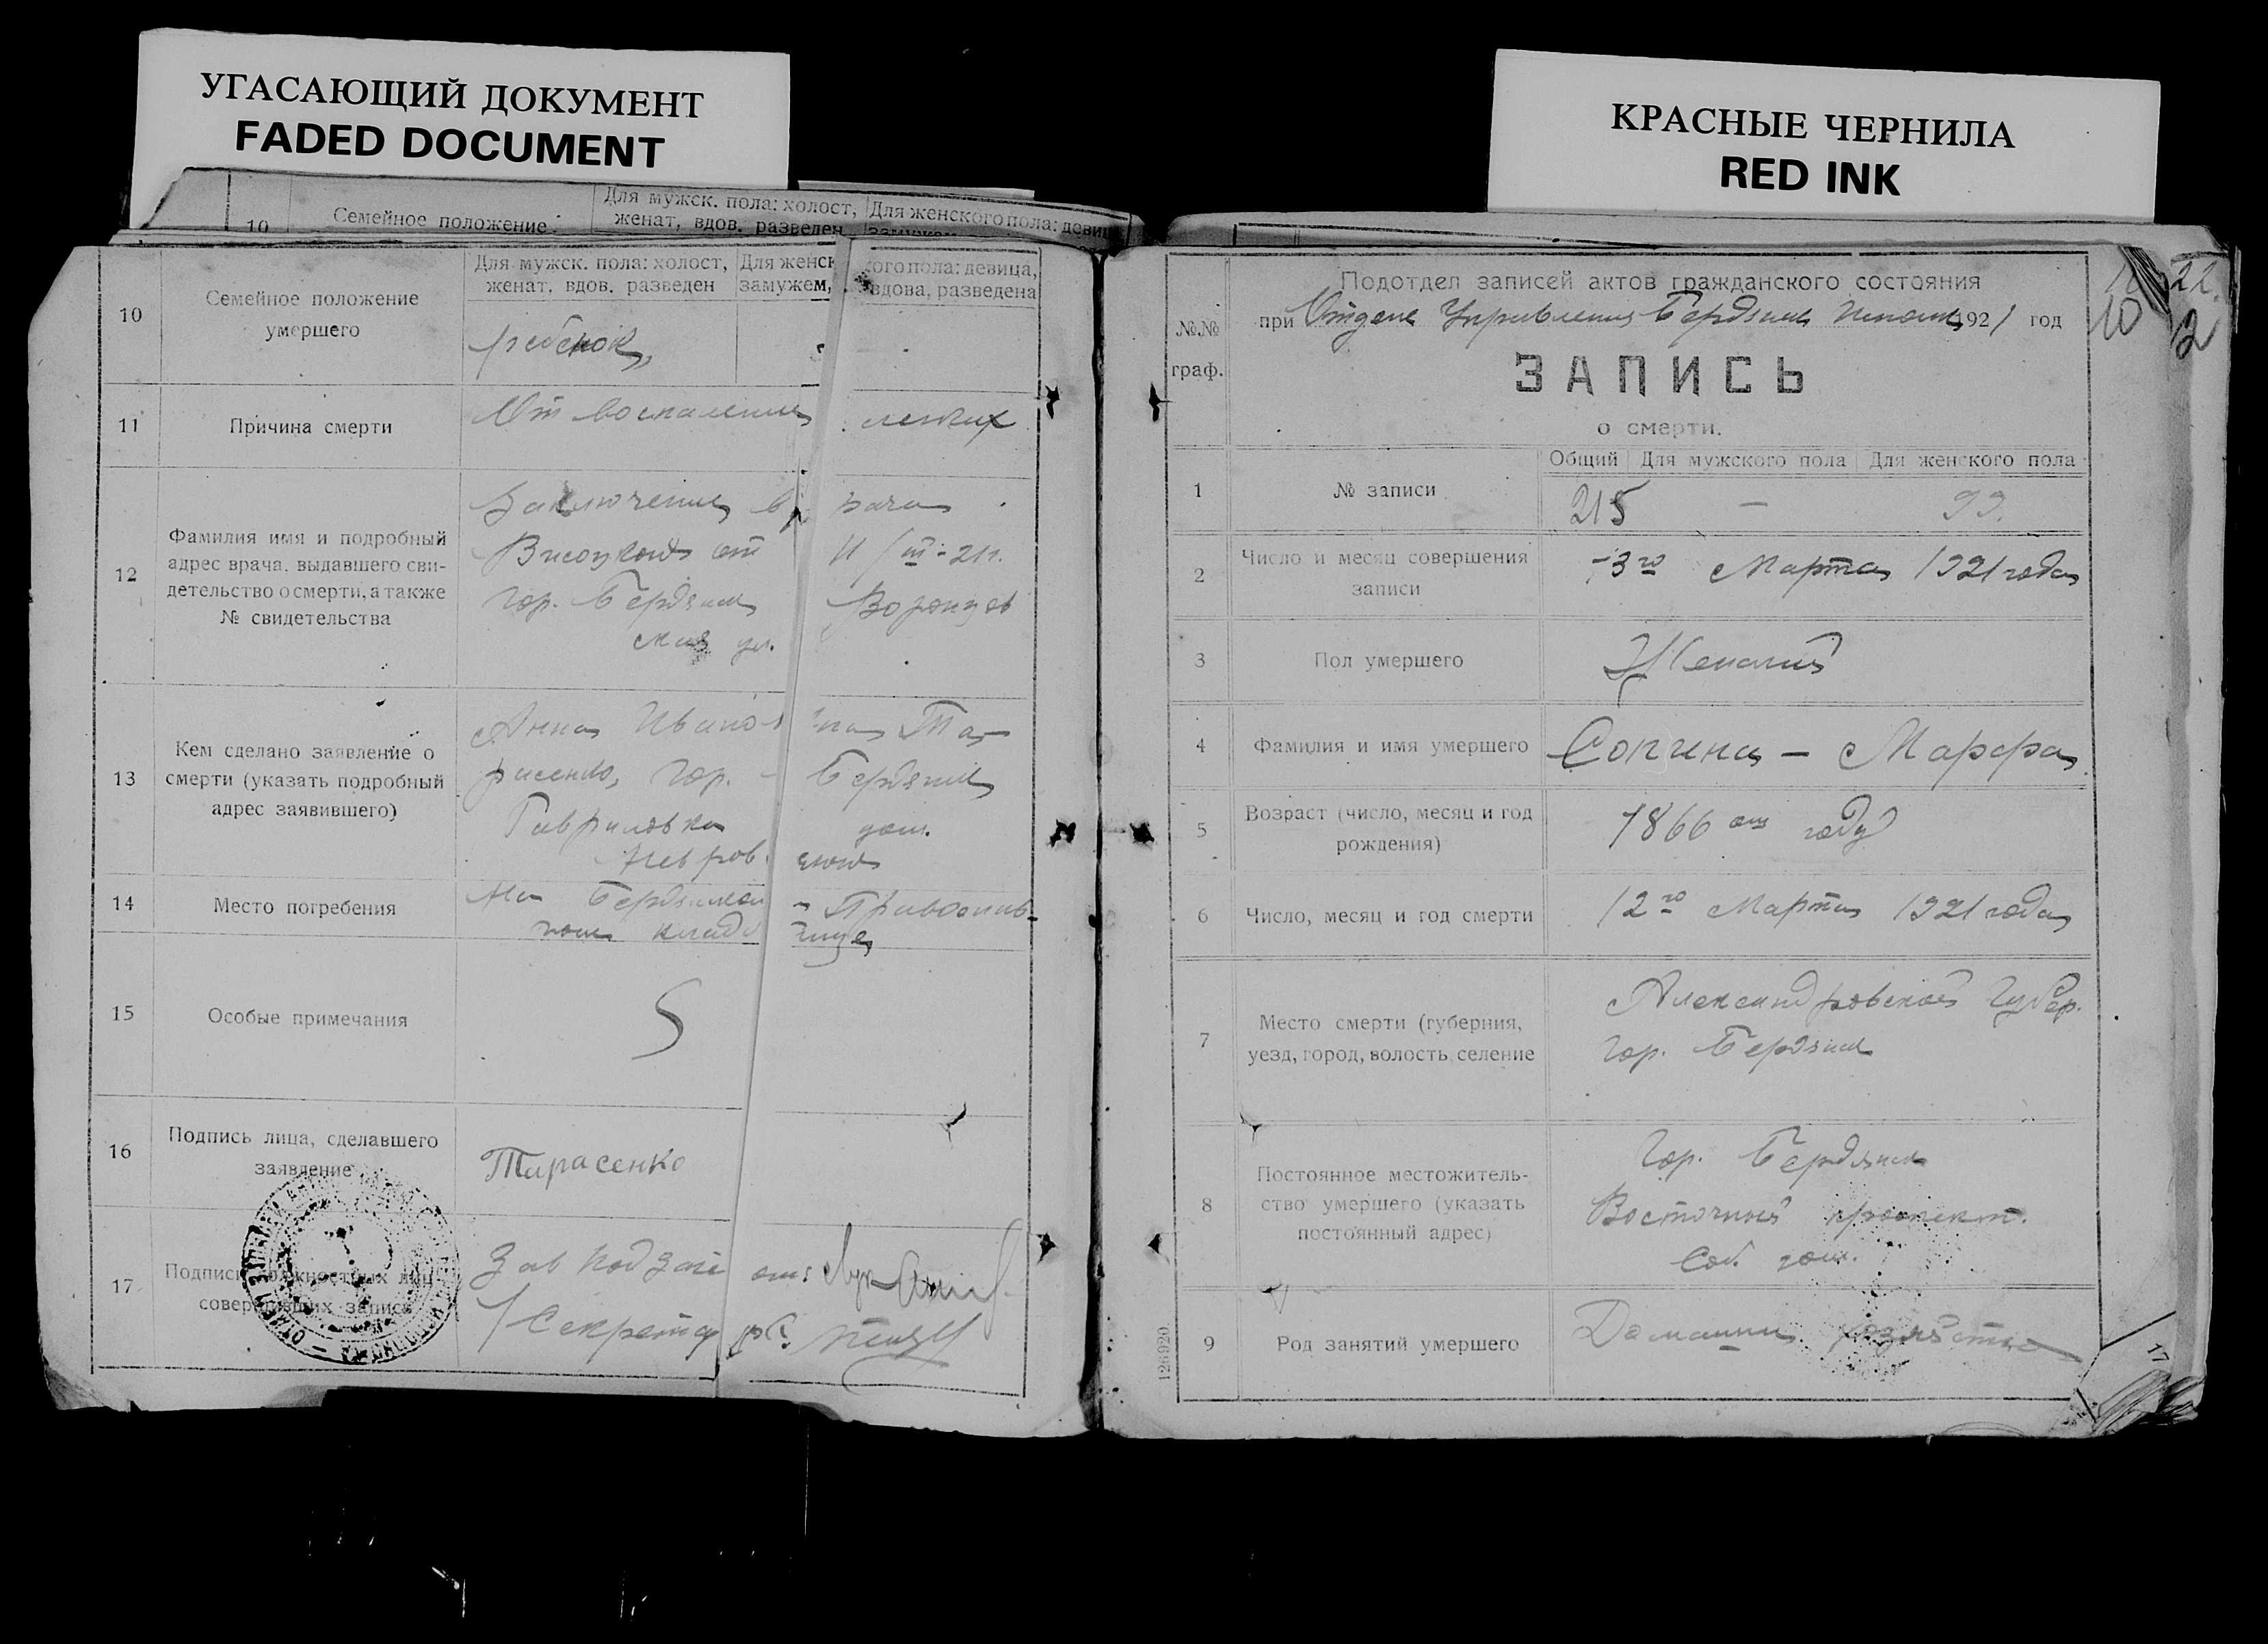 УГАСАЮЩИЙ ДОКУМЕНТ
FADED DOCUMENT
10
Семейное положение
Для мужск. пола: холост,
женат, вдов. разведен
Для женского пола: девица
10
Семейное положение
умершего
Для мужск. пола: холост,
женат, вдов. разведен
Для женск
замужем,
ого пола: девица,
вдова, разведена
ребенок
11
Причина смерти
От воспаления легких
12
Фамилия имя и подробный
адрес врача, выдавшего сви-
детельство о смерти, а также
№ свидетельства
Заключение врача
от 11/III-21г.
гор. Бердянск Воронцов
ул.
13
Кем сделано заявление о
смерти (указать подробный
адрес заявившего)
Анна Ивановна Та-
расенко, гор. Бердянск
Гавриловка дом.
14
Место погребения
На Бердянском Православ-
ном кладбище
15
Особые примечания
16
Подпись лица, сделавшего
заявление
Тарасенко
17
Подпись должностных лиц
совершивших запись
Зав Подзаг
Секретарь
КРАСНЫЕ ЧЕРНИЛА
RED INK
22
10
12
№№
граф.
Подотдел записей актов гражданского состояния
при Отделе Управления Бердянск 1921 год
ЗАПИСЬ
о смерти.
1
№ записи
Общий
Для мужского пола
Для женского пола
215 — 99.
2
Число и месяц совершения
записи
Марта 1921 года
3
Пол умершего
Женский
4
Фамилия и имя умершего
Сопина — Марфа
5
Возраст (число, месяц и год
рождения)
1866 году
6
Число, месяц и год смерти
12го Марта 1921 года
7
Место смерти (губерния,
уезд, город, волость, селение
Александровской Губер.
гор. Бердянск
8
Постоянное местожитель-
ство умершего (указать
постоянный адрес)
Гор. Бердянск
Восточный проспект.
Соб. дом.
9
Род занятий умершего
Домашнее хозяйство
126920
17